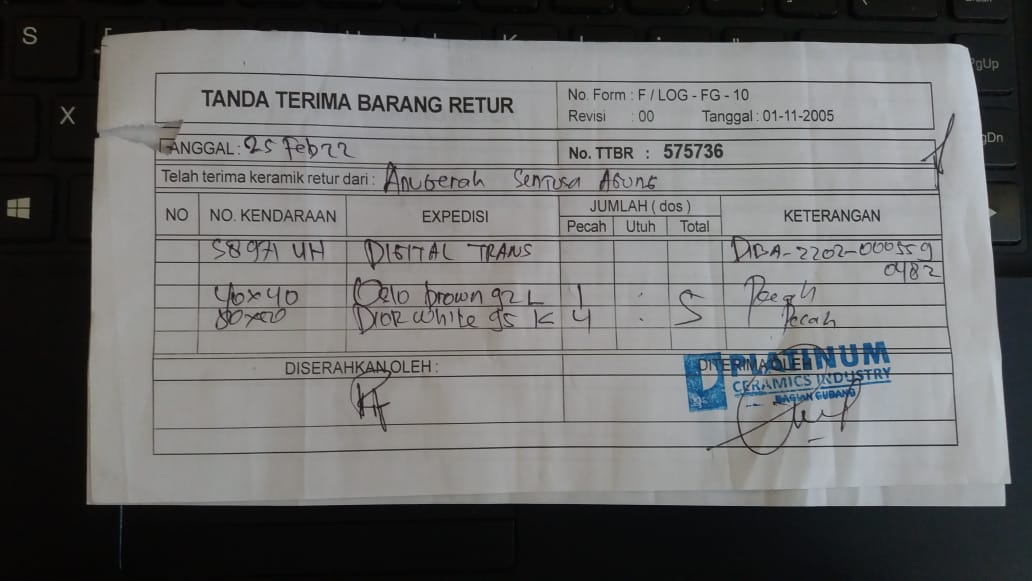 TANDA TERIMA BARANG RETUR
No. Form : F / LOG - FG - 10
Revisi : 00 Tanggal : 01-11-2005
TANGGAL : 25 Feb 22
No. TTBR : 575736
Telah terima keramik retur dari : Anugerah Sentosa Agung
NO NO. KENDARAAN EXPEDISI JUMLAH ( dos ) KETERANGAN
Pecah Utuh Total
S 8971 UH DIGITAL TRANS DIBA-2202-000559
0482
40x40 brown 92 L 1 : Pecah
Dior White 95 K 4 : 5 Pecah
DISERAHKAN OLEH : DITERIMA OLEH
PLATINUM
CERAMICS INDUSTRY
BAGIAN GUDANG